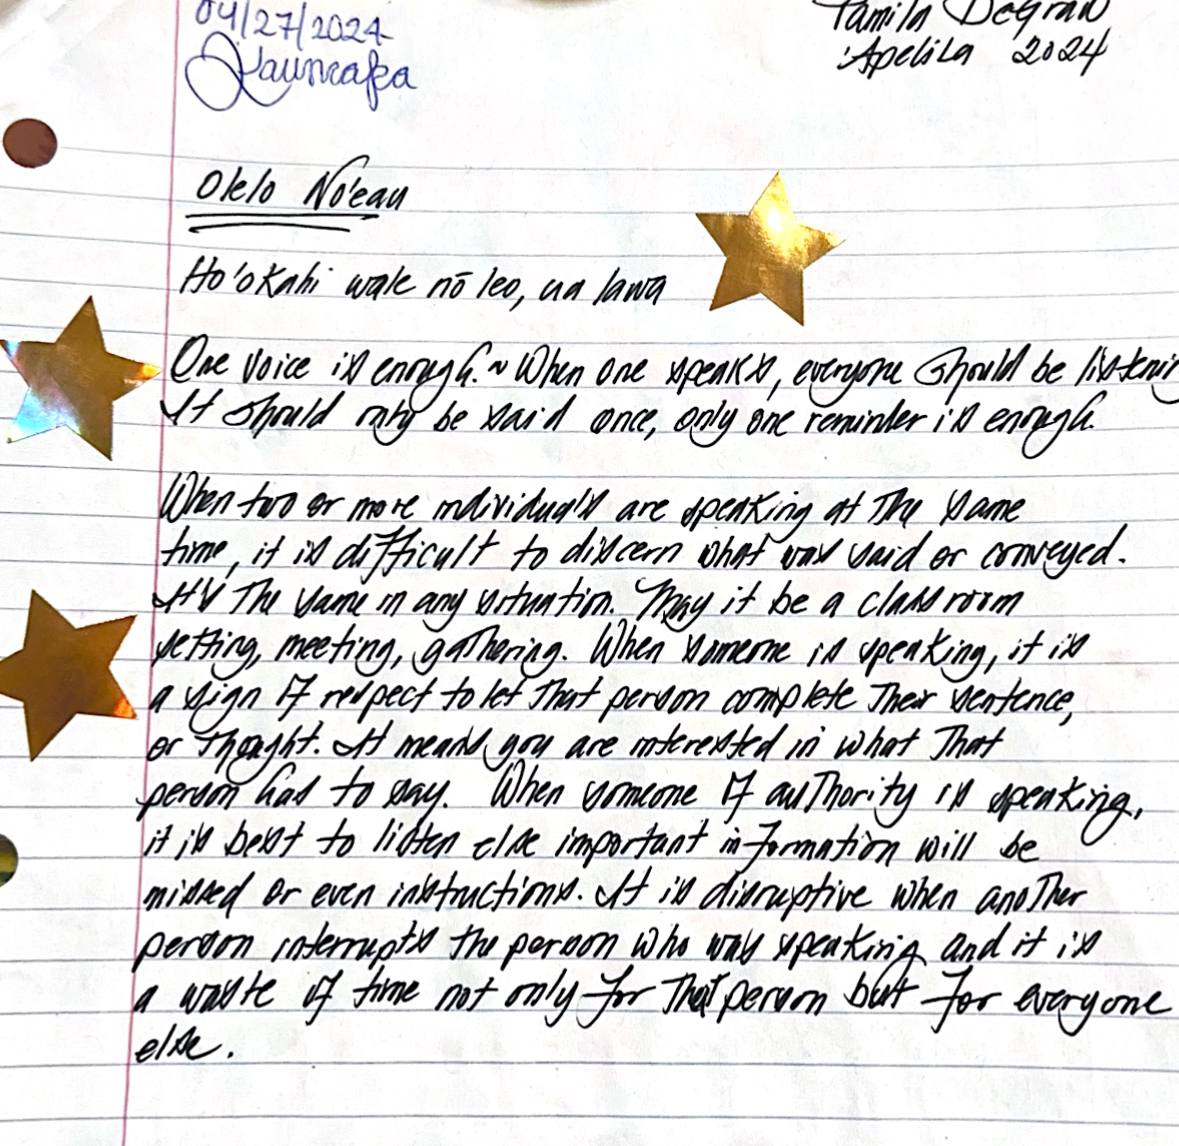 04/27/2024
Tamila DeGran
'Apelila 2024
Olelo No'eau
Ho'okahi wale nō leo, ua lawa
One voice is enough. ~ When one speaks, everyone should be listenin
It should only be said once, only one reminder is enough.
When two or more individual's are speaking at the same
time, it is difficult to discern what was said or conveyed.
It's the same in any situation. May it be a classroom
setting, meeting, gathering. When someone is speaking, it is
a sign of respect to let that person complete their sentence,
or thought. It means you are interested in what that
person has to say. When someone of authority is speaking,
it is best to listen else important information will be
missed or even instructions. It is disruptive when another
person interrupts the person who was speaking and it is
a waste of time not only for that person but for everyone
else.